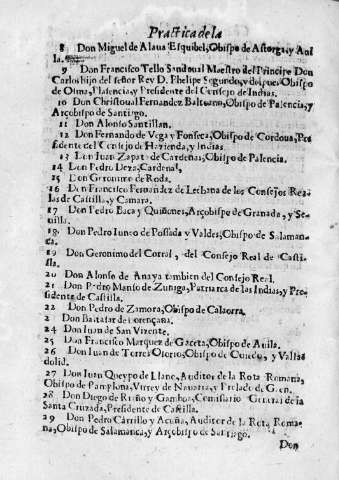 Practica de la
8 Don Miguel de Alaua Esquibel, Obispo de Astorga, y Aui
la.
9 Don Francisco Tello Sandoual Maestro del Principe Don
Carlos hijo del señor Rey D. Phelipe Segundo, y despues Obispo
de Osma, Plasencia, y Presidente del Consejo de Indias.
10 Don Christoual Fernandez Baltoano, Obispo de Palencia, y
Arçobispo de Santiago.
11 Don Alonso Santillan.
12 Don Fernando de Vega y Fonseca, Obispo de Cordoua, Pre
sidente del Consejo de Hazienda, y Indias.
13 Don Iuan Zapata de Cardenas, Obispo de Palencia.
14 Don Pedro Deza, Cardenal,
15 Don Geronimo de Roda.
16 Don Francisco Fernandez de Liebana de los Consejos Rea
les de Castilla, y Camara.
17 Don Pedro Baca y Quiñones, Arçobispo de Granada, y Se
uilla.
18 Don Pedro Iunco de Possada y Valdes, Obispo de Salaman
ca.
19 Don Geronimo del Corral, del Consejo Real de Casti
lla.
20 Don Alonso de Anaya tambien del Consejo Real.
21 Don Pedro Manso de Zuñiga, Patriarca de las Indias, y Pre
sidente de Castilla.
22 Don Pedro de Zamora, Obispo de Calaorra.
2 Don Baltasar de Lorençana.
24 Don Iuan de San Vizente.
25 Don Francisco Marquez de Gaceta, Obispo de Auila.
26 Don Iuan de Torres Osorio, Obispo de Ouiedo, y Vallad
dolid.
27 Don Iuan Queypo de Llano, Auditor de la Rota Romana,
Obispo de Pamplona, Virrey de Nauarra, y Prelado de Gaen.
28 Don Diego de Riaño y Gamboa, Comissario General de la
Santa Cruzada, Presidente de Castilla.
29 Don Pedro Carrillo y Acuña, Auditor de la Rota Roma
na, Obispo de Salamanca, y Arçobispo de Santiago.
Don